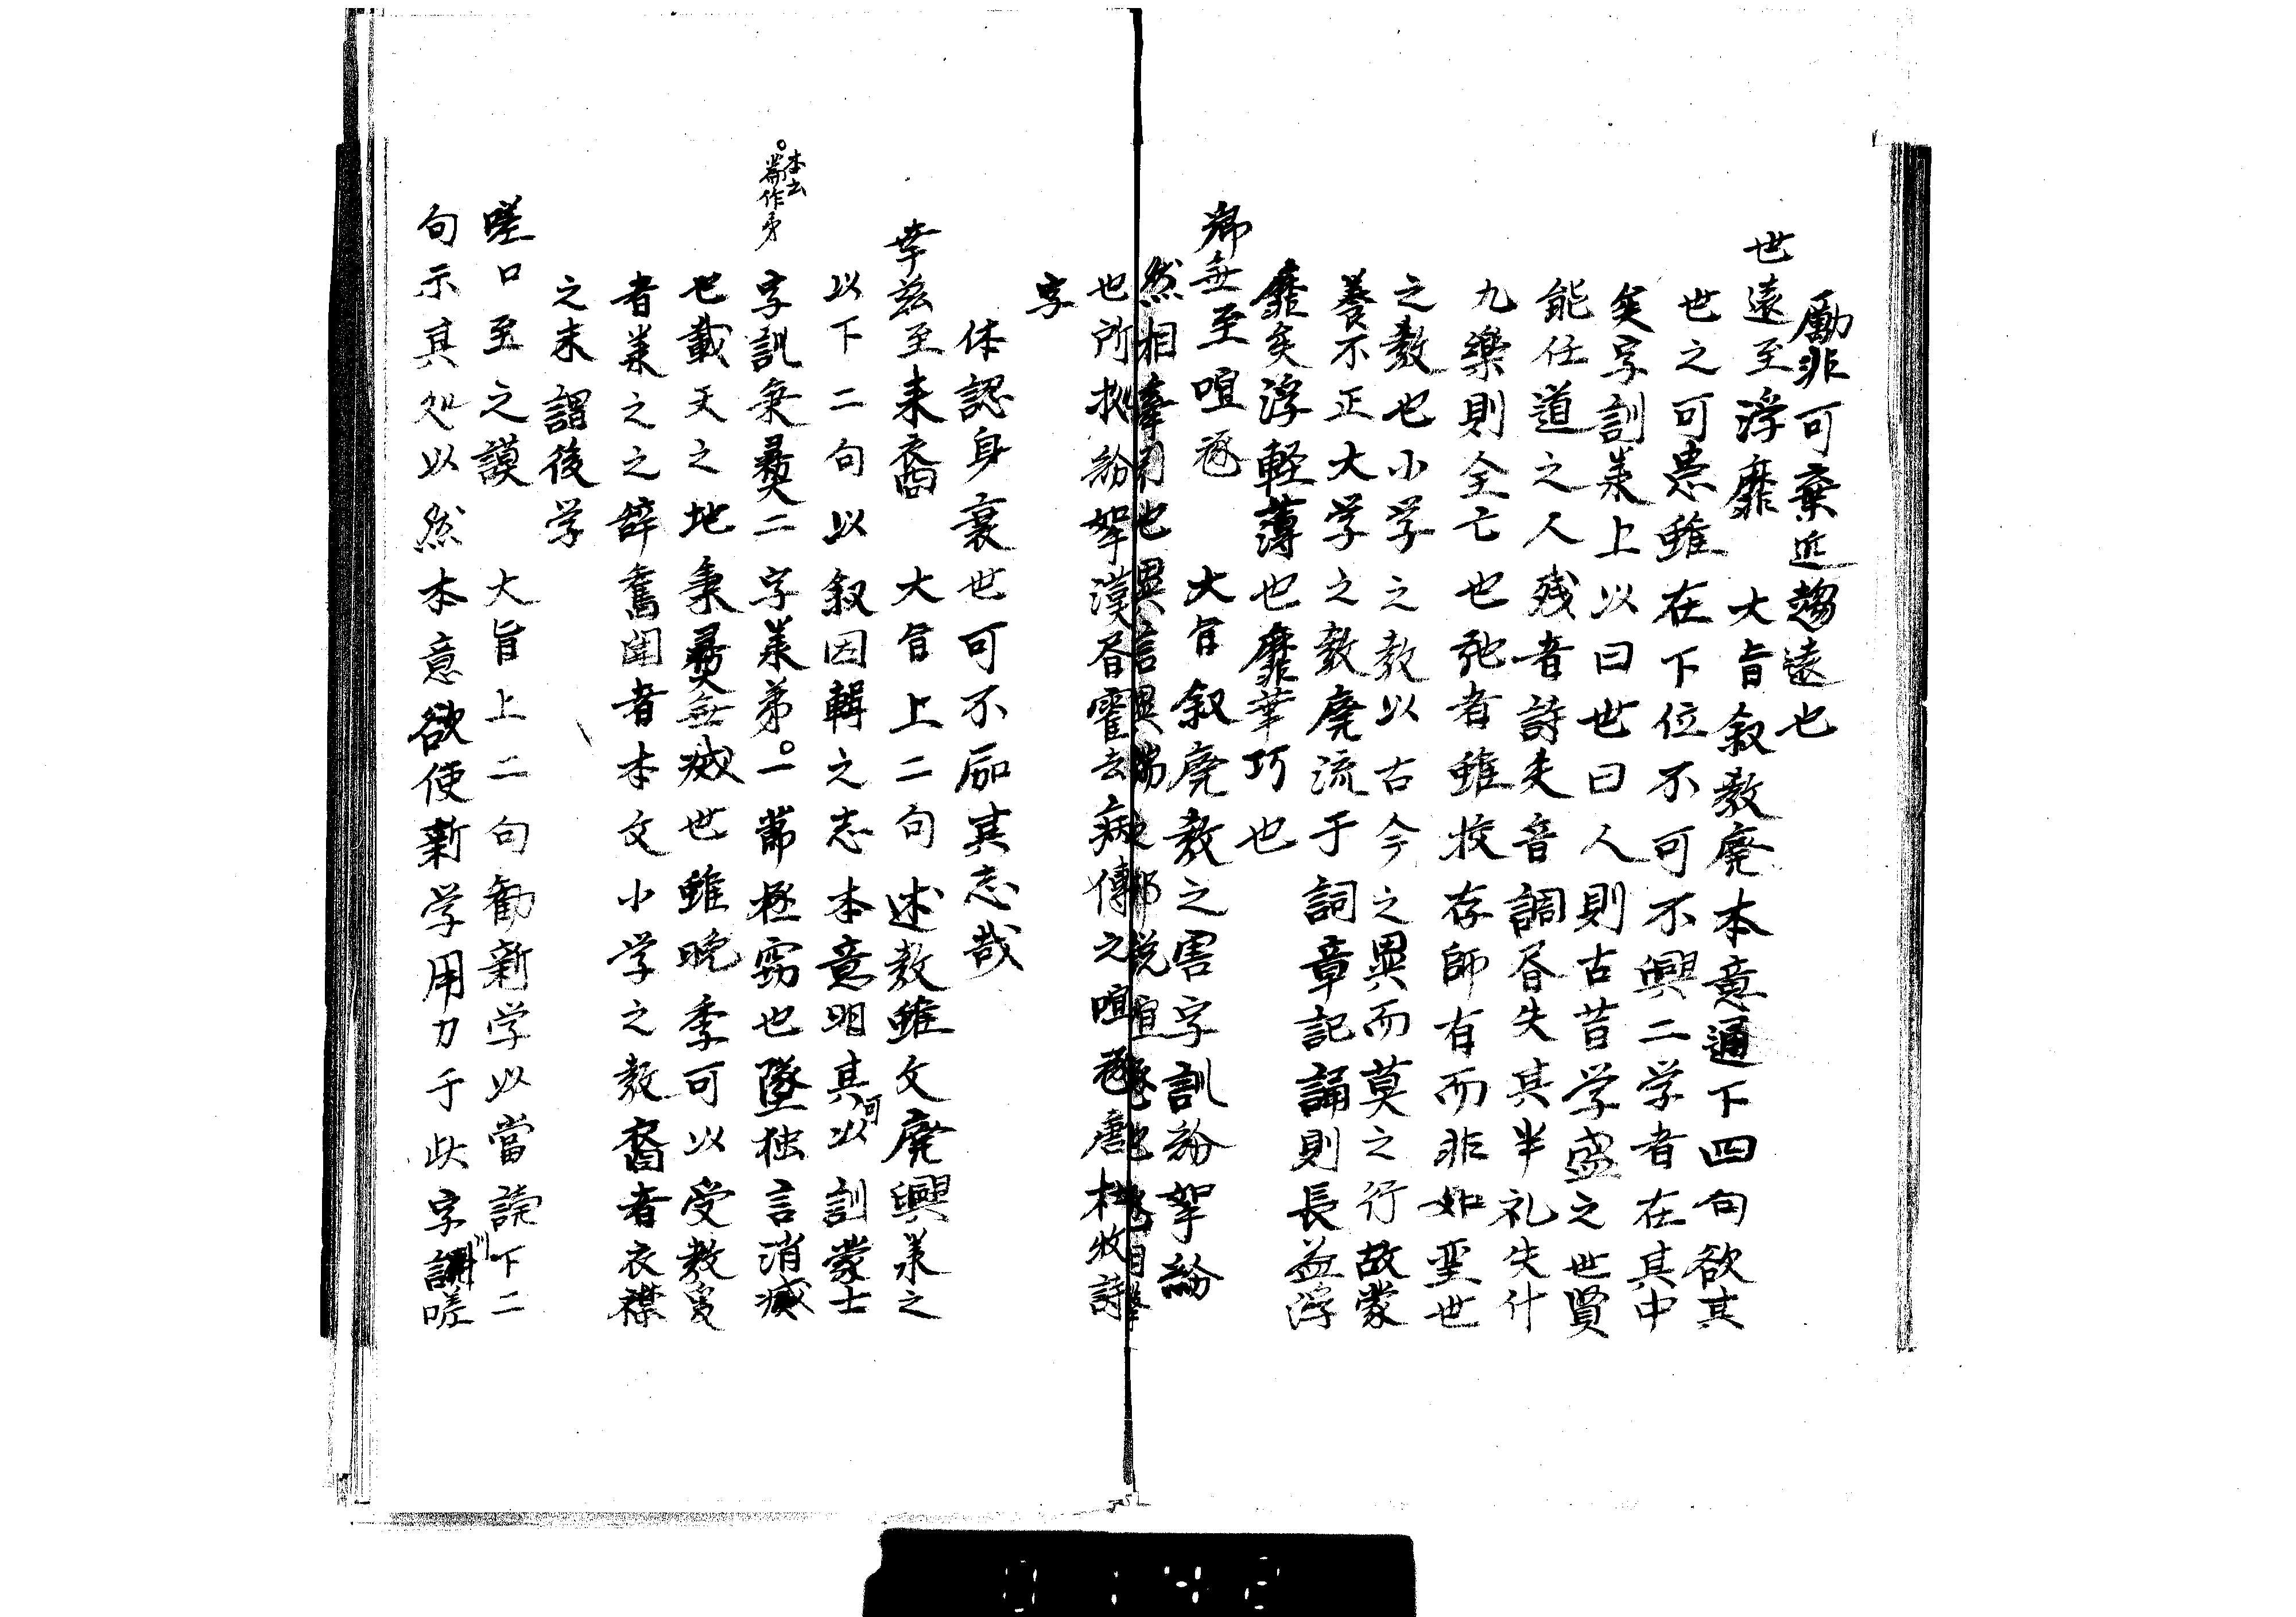 勵非可棄近趨遠也
世遠至浮靡　大旨叙教廃本意通下四句欲其
世之可患雖在下位不可不興二学者在其中
矣字訓義上以曰世曰人則古昔学盛之世賢
能任道之人残者詩夫音調啓失其半礼失什
九樂則全亡也弛者雖挍存師有而非如聖世
之教也小学之教以古今之異而莫之行故蒙
養不正大学之教廃流于詞章記誦則長益浮
靡矣浮軽薄也靡華巧也
郷無至喧豗　大旨叙廃教之害字訓紛挐紛
然相牽引也異言異端之邪説喧豗也豗相撃
也所拠紛挐漢啓霍去病傳之喧豗唐杜牧詩
字
体認身裏世可不励其志哉
幸茲至来裔　大旨上二句述教雖文廃興義之
以下二句以叙因輯之志本意明其可以訓蒙士
字訓秉彝二字義第。一常極窮也墜独言消滅
也載天之地秉彝無滅世雖晩季可以受教爰
者義之之辞旧聞者本文小学之教裔者衣襟
之末謂後学
嗟口至之謨　大旨上二句勧新学以當読下二
句示其処以然本意欲使新学用力于此字訓嗟
本云
。篇作第